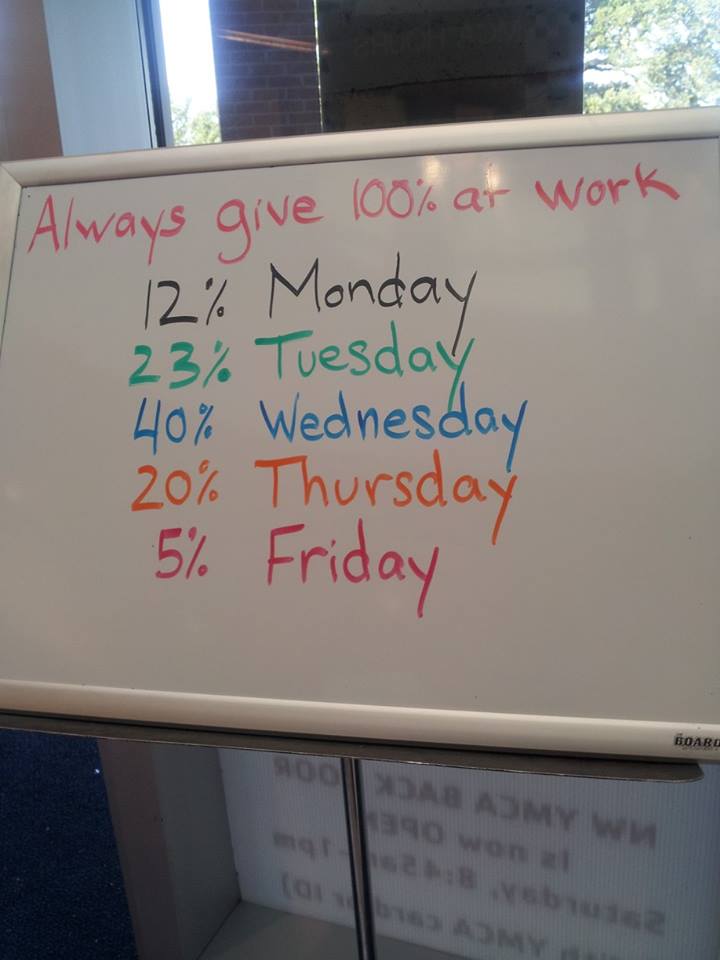 Always give 100% at work
12% Monday
23% Tuesday
40% Wednesday
20% Thursday
5% Friday
BOARD
NW YMCA BACK
Is now OPEN
Saturday, 8:45am-1pm
YMCA card or ID)